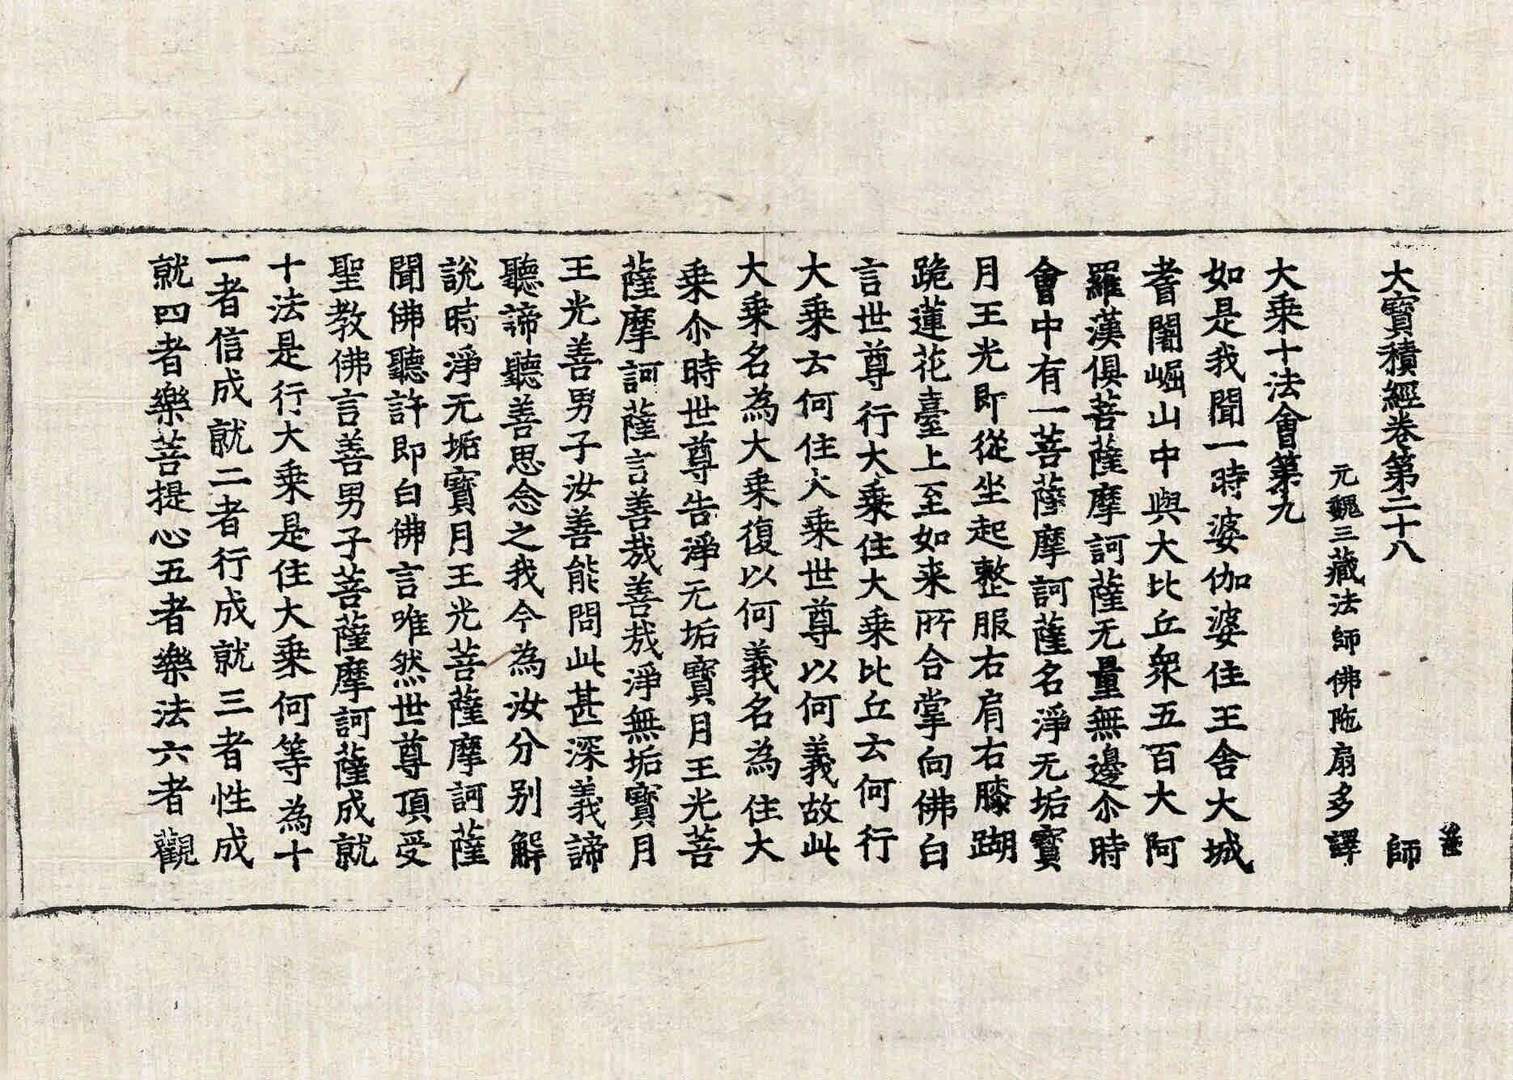 大寶積經卷第二十八 師
元魏三藏法師佛陁扇多譯
大乘十法會第九
如是我聞一時婆伽婆住王舍大城
耆闍崛山中與大比丘衆五百大阿
羅漢俱菩薩摩訶薩无量無邊尒時
會中有一菩薩摩訶薩名淨无垢寶
月王光即從坐起整服右肩右膝跪
跪蓮花臺上至如来所合掌向佛白
言世尊行大乘住大乘比丘云何行
大乘云何住大乘世尊以何義故此
大乘名為大乘復以何義名為住大
乘尒時世尊告淨无垢寶月王光菩
薩摩訶薩言善哉善哉淨無垢寶月
王光善男子汝善能問此甚深義諦
聽諦聽善思念之我今為汝分别解
說時淨无垢寶月王光菩薩摩訶薩
聞佛聽許即白佛言唯然世尊頂受
聖教佛言善男子菩薩摩訶薩成就
十法是行大乘是住大乘何等為十
一者信成就二者行成就三者性成
就四者樂菩提心五者樂法六者觀